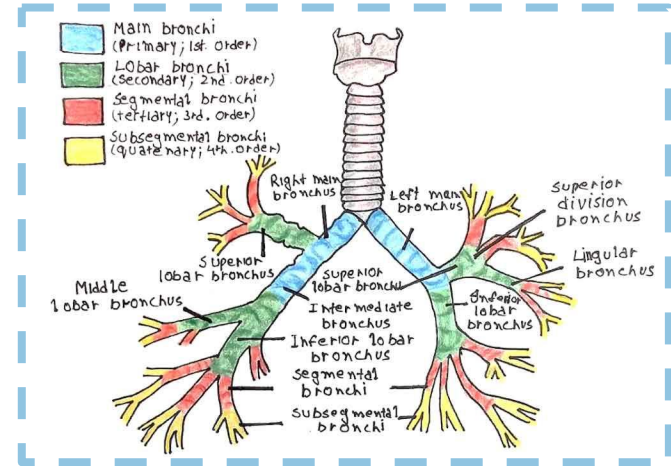 Main bronchi
(Primary; 1st. order)
Lobar bronchi
(secondary; 2nd. order)
Segmental bronchi
(tertiary; 3rd. order)
Subsegmental bronchi
(quatenary; 4th. order)
Right main
bronchus
Left main
bronchus
Superior
division
bronchus
Superior
lobar bronchus
Superior
lobar bronchus
Lingular
bronchus
Middle
lobar bronchus
Intermediate
bronchus
Inferior
lobar
bronchus
Inferior lobar
bronchus
Segmental
bronchi
Subsegmental
bronchi